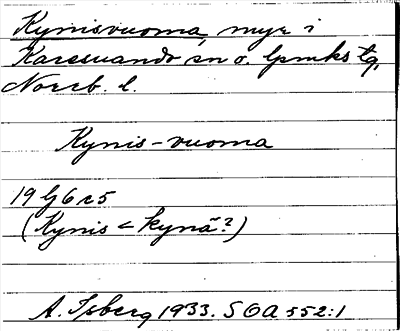 Kynisvuoma, myr i
Karesuando sn o. lpmks tg,
Norrb. l.
Kynis-vuoma
19 G 6 r 5
(Kynis < kynä?)
A. Isberg 1933. SOA 552:1